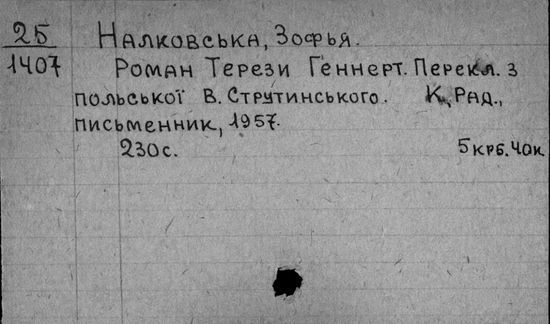 25 Налковська, Зофья.
1407 Роман Терези Геннерт. Перекл. з
польської В. Струтинського. К, Рад.,
письменник, 1957.
230с. 5 крб. 40к